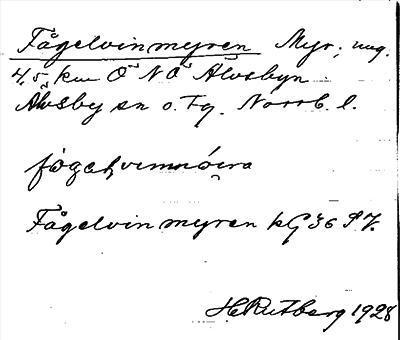 Fågelvinmyren Myr; ung.
4,5 km Ö N Ö Älvsbyn
Älvsby sn o. Fg. Norrb. l.
Fågelvinmyren kG 36 S V.
H Rutberg 1928